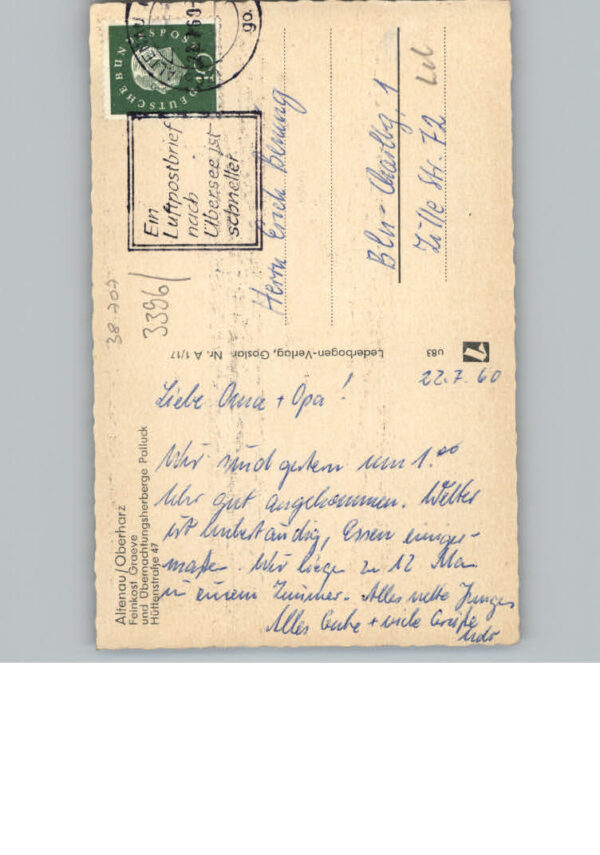 DEUTSCHE BUNDESPOST
ALTENAU
Ein
Luftpostbrief
nach
Übersee ist
schneller
Herrn Erich
Bln-Charlbg. 1
Zille Str. 72
38-707
3396/
Lederbogen-Verlag, Goslar Nr. A 1/17
U83
Altenau/Oberharz
Feinkost Graeve
und Übernachtungsherberge Polluck
Hüttenstraße 47
22.7.60
Liebe Oma + Opa!
Wir sind gestern um 1.00
Uhr gut angekommen. Wetter
ist unbeständig, Essen einiger-
maßen. Wir liegen zu 12 Mann
in einem Zimmer. Alles nette Jungens
Alles Gute + viele Grüße
Udo